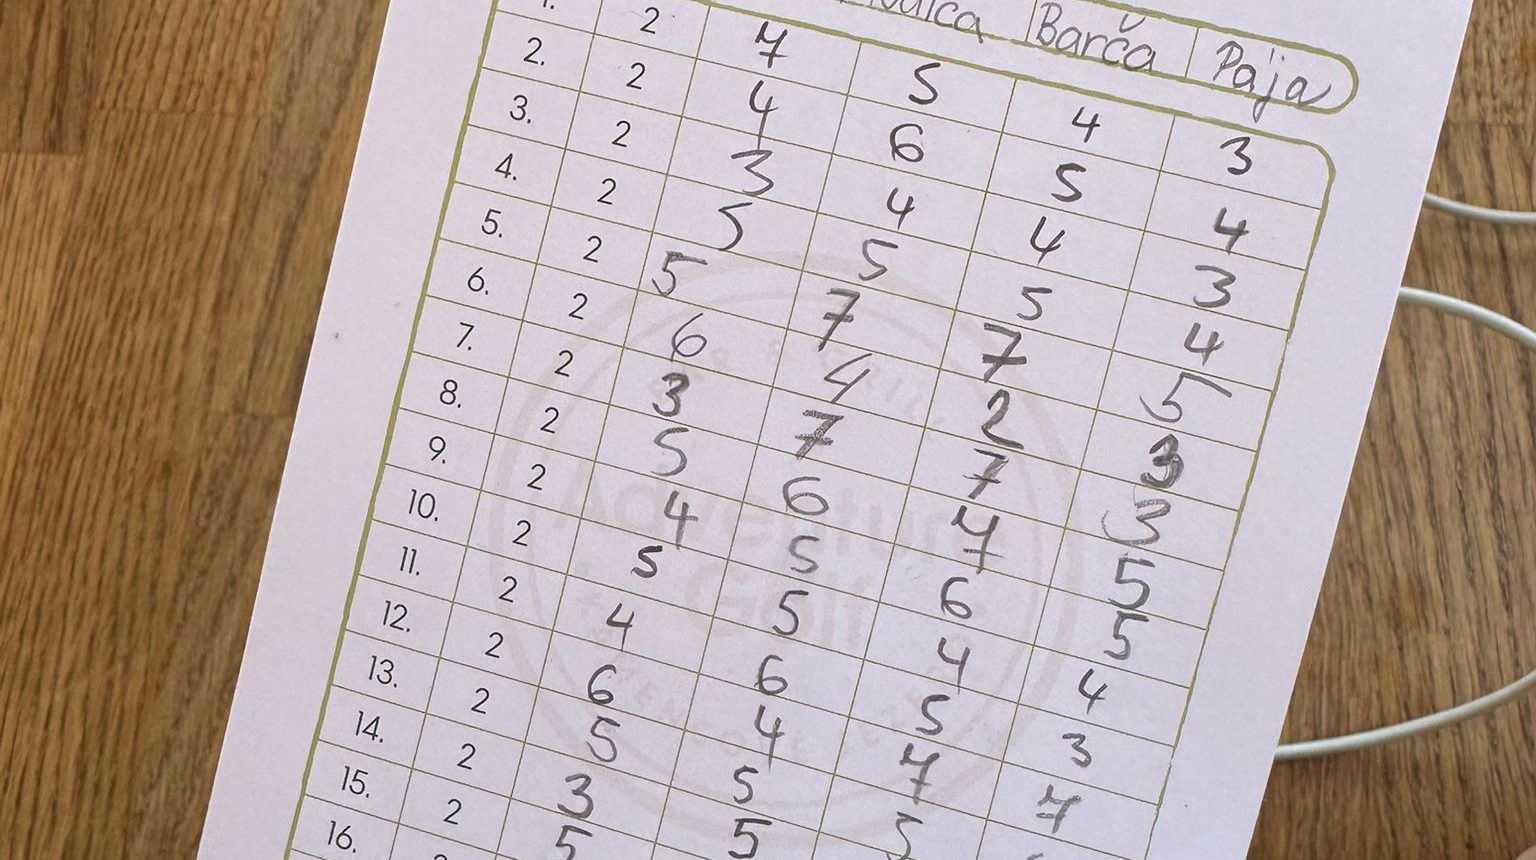 Barča Pája
1. 2 7 5 4 3
2. 2 4 6 5 4
3. 2 3 4 4 3
4. 2 5 5 5 4
5. 2 5 7 7 5
6. 2 6 4 2 3
7. 2 3 7 7 3
8. 2 5 6 7 5
9. 2 4 5 6 5
10. 2 5 5 4 4
11. 2 4 6 5 3
12. 2 6 4 7 7
13. 2 5 5
14. 2 3 5
15. 2 5
16.